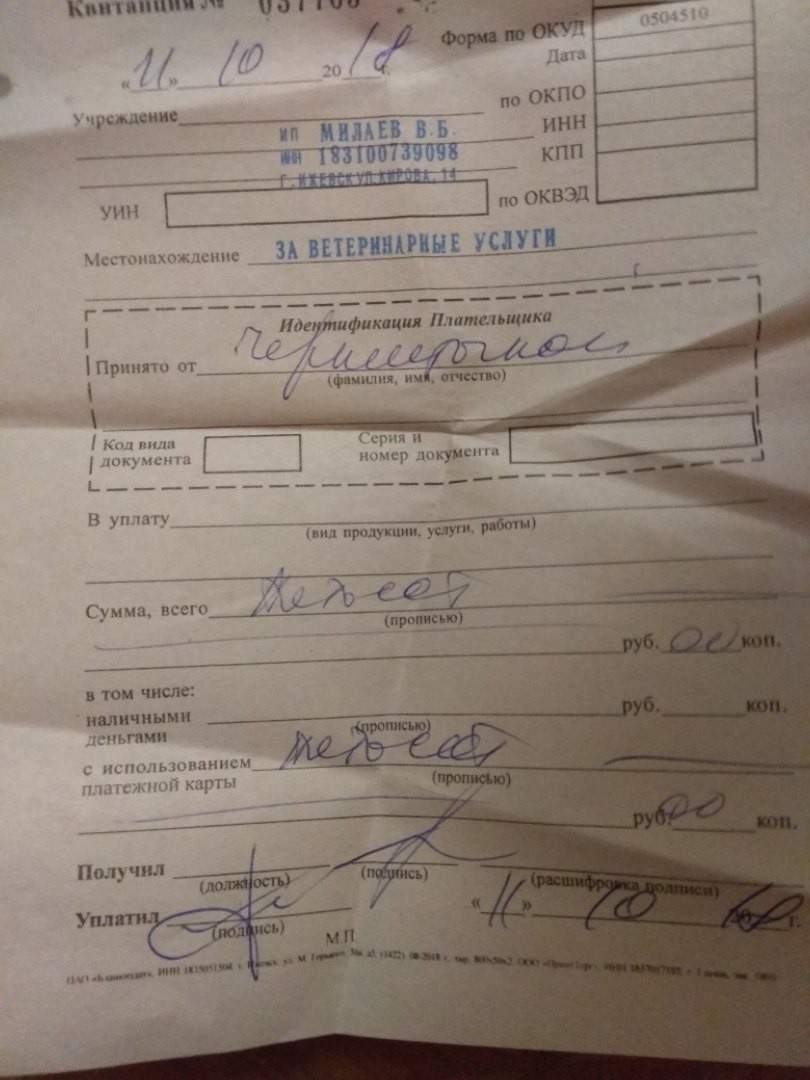 Квитанция №
Форма по ОКУД 0504510
« 11 » 10 20 18 г.
Дата
Учреждение
по ОКПО
ИП МИЛАЕВ В.Б.
ИНН
ИНН 183100739098
КПП
Г.ИЖЕВСК УЛ.КИРОВА, 14
УИН
по ОКВЭД
Местонахождение ЗА ВЕТЕРИНАРНЫЕ УСЛУГИ
Идентификация Плательщика
Принято от
(фамилия, имя, отчество)
Код вида
документа
Серия и
номер документа
В уплату
(вид продукции, услуги, работы)
Сумма, всего пятьсот
(прописью)
руб. 00 коп.
в том числе:
наличными
деньгами
руб. коп.
(прописью)
с использованием
платежной карты
пятьсот
(прописью)
руб. 00 коп.
Получил
(должность) (подпись) (расшифровка подписи)
Уплатил
(подпись)
« 11 » 10 2018 г.
М.П.